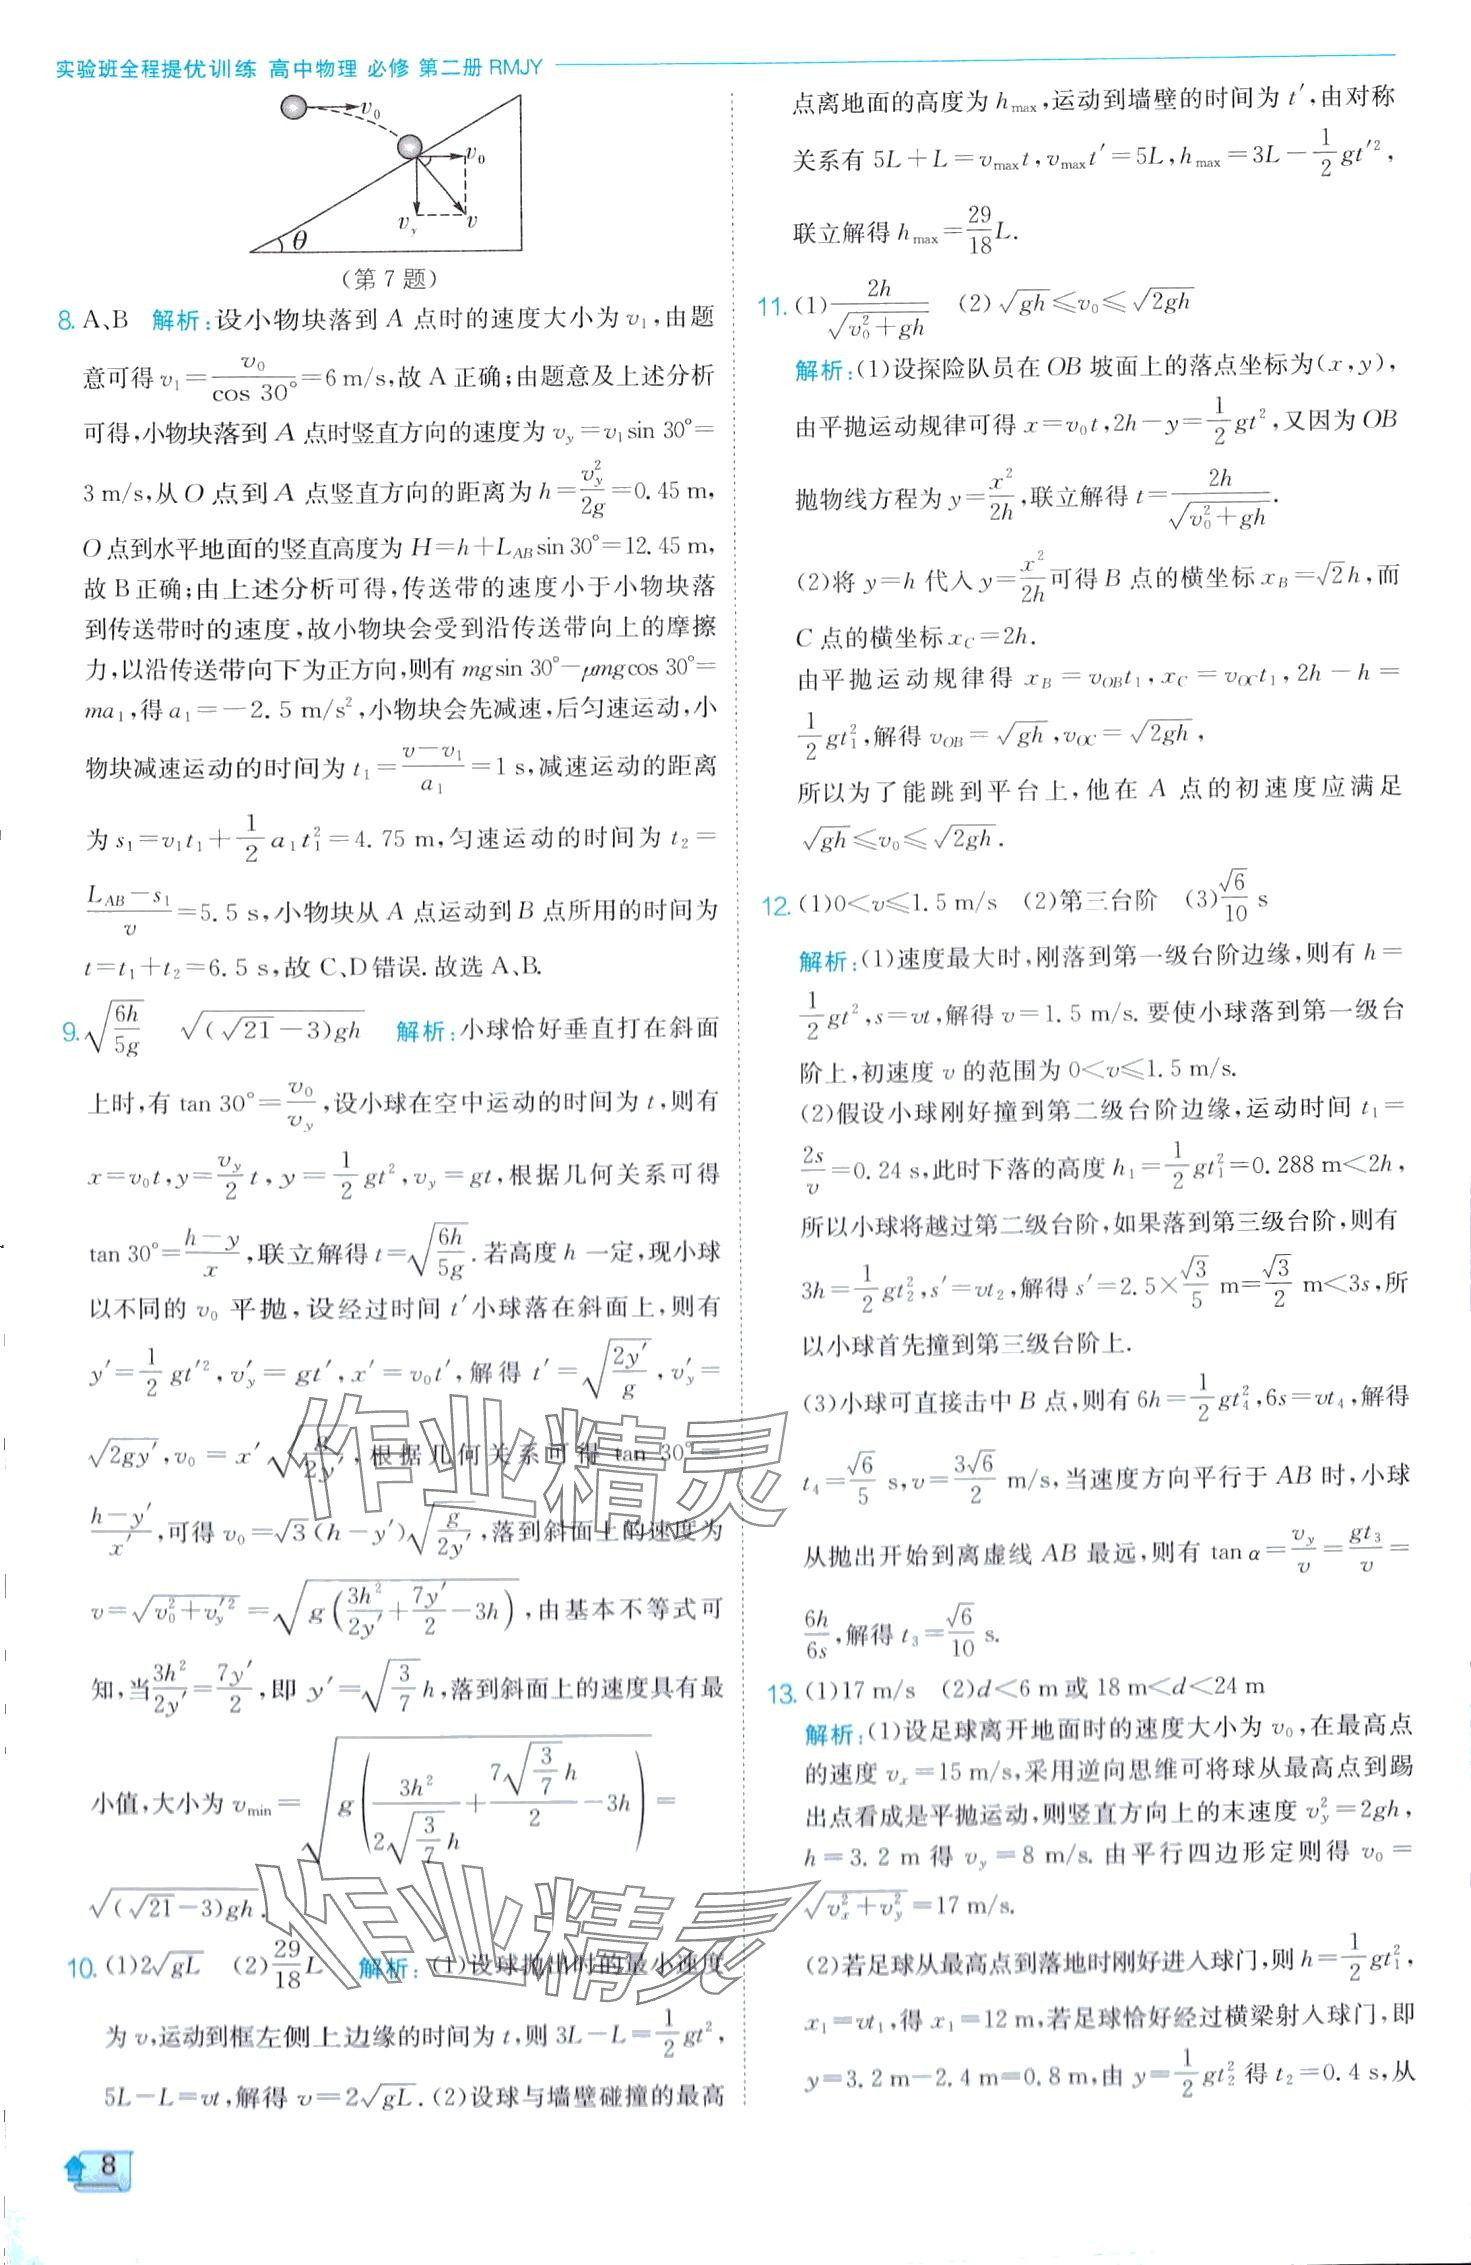 实验班全程提优训练 高中物理 必修 第二册 RMJY
v₀
v₀
v_y
v
θ
(第 7 题)
8. A、B 解析:设小物块落到 A 点时的速度大小为 v₁,由题
意可得 v₁=v₀/cos 30°=6 m/s,故 A 正确;由题意及上述分析
可得,小物块落到 A 点时竖直方向的速度为 v_y=v₁sin 30°=
3 m/s,从 O 点到 A 点竖直方向的距离为 h=v_y²/2g=0.45 m,
O 点到水平地面的竖直高度为 H=h+L_AB sin 30°=12.45 m,
故 B 正确;由上述分析可得,传送带的速度小于小物块落
到传送带时的速度,故小物块会受到沿传送带向上的摩擦
力,以沿传送带向下为正方向,则有 mgsin 30°-μmgcos 30°=
ma₁,得 a₁=-2.5 m/s²,小物块会先减速,后匀速运动,小
物块减速运动的时间为 t₁=(v-v₁)/a₁=1 s,减速运动的距离
为 s₁=v₁t₁+1/2 a₁t₁²=4.75 m,匀速运动的时间为 t₂=
(L_AB-s₁)/v=5.5 s,小物块从 A 点运动到 B 点所用的时间为
t=t₁+t₂=6.5 s,故 C、D 错误.故选 A、B.
9. √(6h/5g) √((√21-3)gh) 解析:小球恰好垂直打在斜面
上时,有 tan 30°=v₀/v_y,设小球在空中运动的时间为 t,则有
x=v₀t,y=v_y/2 t,y=1/2 gt²,v_y=gt,根据几何关系可得
tan 30°=(h-y)/x,联立解得 t=√(6h/5g).若高度 h 一定,现小球
以不同的 v₀ 平抛,设经过时间 t′小球落在斜面上,则有
y′=1/2 gt′²,v′_y=gt′,x′=v₀t′,解得 t′=√(2y′/g),v′_y=
√(2gy′),v₀=x′√(g/2y′),根据几何关系可得 tan 30°=
(h-y′)/x′,可得 v₀=√3(h-y′)√(g/2y′),落到斜面上的速度为
v=√(v₀²+v_y′²)=√(g(3h²/2y′+7y′/2-3h)),由基本不等式可
知,当3h²/2y′=7y′/2,即 y′=√(3/7)h,落到斜面上的速度具有最
小值,大小为 v_min=√(g(3h²/(2√(3/7)h)+7√(3/7)h/2-3h))=
√((√21-3)gh).
10. (1)2√(gL) (2)29/18 L 解析:(1)设球抛出时的最小速度
为 v,运动到框左侧上边缘的时间为 t,则 3L-L=1/2 gt²,
5L-L=vt,解得 v=2√(gL).(2)设球与墙壁碰撞的最高
点离地面的高度为 h_max,运动到墙壁的时间为 t′,由对称
关系有 5L+L=v_max t,v_max t′=5L,h_max=3L-1/2 gt′²,
联立解得 h_max=29/18 L.
11. (1)2h/√(v₀²+gh) (2)√(gh)≤v₀≤√(2gh)
解析:(1)设探险队员在 OB 坡面上的落点坐标为(x,y),
由平抛运动规律可得 x=v₀t,2h-y=1/2 gt²,又因为 OB
抛物线方程为 y=x²/2h,联立解得 t=2h/√(v₀²+gh).
(2)将 y=h 代入 y=x²/2h可得 B 点的横坐标 x_B=√2h,而
C 点的横坐标 x_C=2h.
由平抛运动规律得 x_B=v_OB t₁,x_C=v_OC t₁,2h-h=
1/2 gt₁²,解得 v_OB=√(gh),v_OC=√(2gh),
所以为了能跳到平台上,他在 A 点的初速度应满足
√(gh)≤v₀≤√(2gh).
12. (1)0<v≤1.5 m/s (2)第三台阶 (3)√6/10 s
解析:(1)速度最大时,刚落到第一级台阶边缘,则有 h=
1/2 gt²,s=vt,解得 v=1.5 m/s.要使小球落到第一级台
阶上,初速度 v 的范围为 0<v≤1.5 m/s.
(2)假设小球刚好撞到第二级台阶边缘,运动时间 t₁=
2s/v=0.24 s,此时下落的高度 h₁=1/2 gt₁²=0.288 m<2h,
所以小球将越过第二级台阶,如果落到第三级台阶,则有
3h=1/2 gt₂²,s′=vt₂,解得 s′=2.5×√3/5 m=√3/2 m<3s,所
以小球首先撞到第三级台阶上.
(3)小球可直接击中 B 点,则有 6h=1/2 gt₄²,6s=vt₄,解得
t₄=√6/5 s,v=3√6/2 m/s,当速度方向平行于 AB 时,小球
从抛出开始到离虚线 AB 最远,则有 tan α=v_y/v=gt₃/v=
6h/6s,解得 t₃=√6/10 s.
13. (1)17 m/s (2)d<6 m 或 18 m<d<24 m
解析:(1)设足球离开地面时的速度大小为 v₀,在最高点
的速度 v_x=15 m/s,采用逆向思维可将球从最高点到踢
出点看成是平抛运动,则竖直方向上的末速度 v_y²=2gh,
h=3.2 m 得 v_y=8 m/s.由平行四边形定则得 v₀=
√(v_x²+v_y²)=17 m/s.
(2)若足球从最高点到落地时刚好进入球门,则 h=1/2 gt₁²,
x₁=vt₁,得 x₁=12 m,若足球恰好经过横梁射入球门,即
y=3.2 m-2.4 m=0.8 m,由 y=1/2 gt₂² 得 t₂=0.4 s,从
作业精灵
作业精灵
8